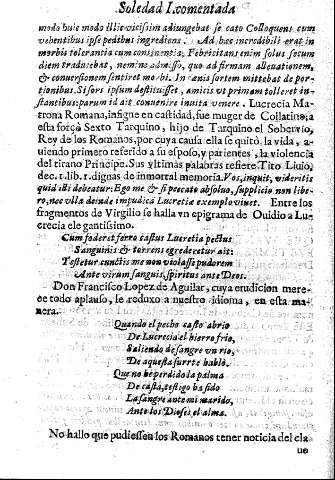 Soledad I.comentada
modo huic modo illi vicissim adiungebat se cato Colloquens cum
vehentibus ipse pedibus ingrediens. Ad hæc incredibili erat in
morbis tolerantia cum continentia, Febricitans enim solus secum
diem traducebat, nemine admisso, quo ad firmam alleuationem,
& conuersionem sentiret morbi. In cænis sortem mittebat de por-
tionibus. Si sors ipsum destituisset, amicis vt primam tolleret in-
stantibus: parum id ait conuenire inuita venere. Lucrecia Ma-
trona Romana, insigne en castidad, fue muger de Collatino, a
esta forçò Sexto Tarquino, hijo de Tarquino el Soberuio,
Rey de los Romanos, por cuya causa ella se quitò la vida, a-
uiendo primero referido a su esposo, y parientes, la violencia
del tirano Principe. Sus vltimas palabras refiere Tito Liuio,
dec. 1. lib. 1. dignas de immortal memoria. Vos, inquit, videritis
quid illi debeatur: Ego me & si peccato absoluo, supplicio non libe-
ro, nec vlla deinde impudica Lucretiæ exemplo viuet. Entre los
fragmentos de Virgilio se halla vn epigrama de Ouidio a Lu-
crecia elegantissimo.
Cum foderet ferro castus Lucretia pectus
Sanguinis & torrens egrederetur ait:
Testetur cunctis me non violasse pudorem
Ante virum sanguis, spiritus ante Deos.
Don Francisco Lopez de Aguilar, cuya erudicion mere-
ce todo aplauso, le reduxo a nuestro idioma, en esta ma-
nera.
Quando el pecho casto abrio
De Lucrecia el hierro frio,
Saliendo de sangre vn rio,
De aquesta suerte hablò.
Que no he perdido la palma
De casta, testigo ha sido
La sangre ante mi marido,
Ante los Dioses el alma.
No hallo que pudiessen los Romanos tener noticia del cla
uo